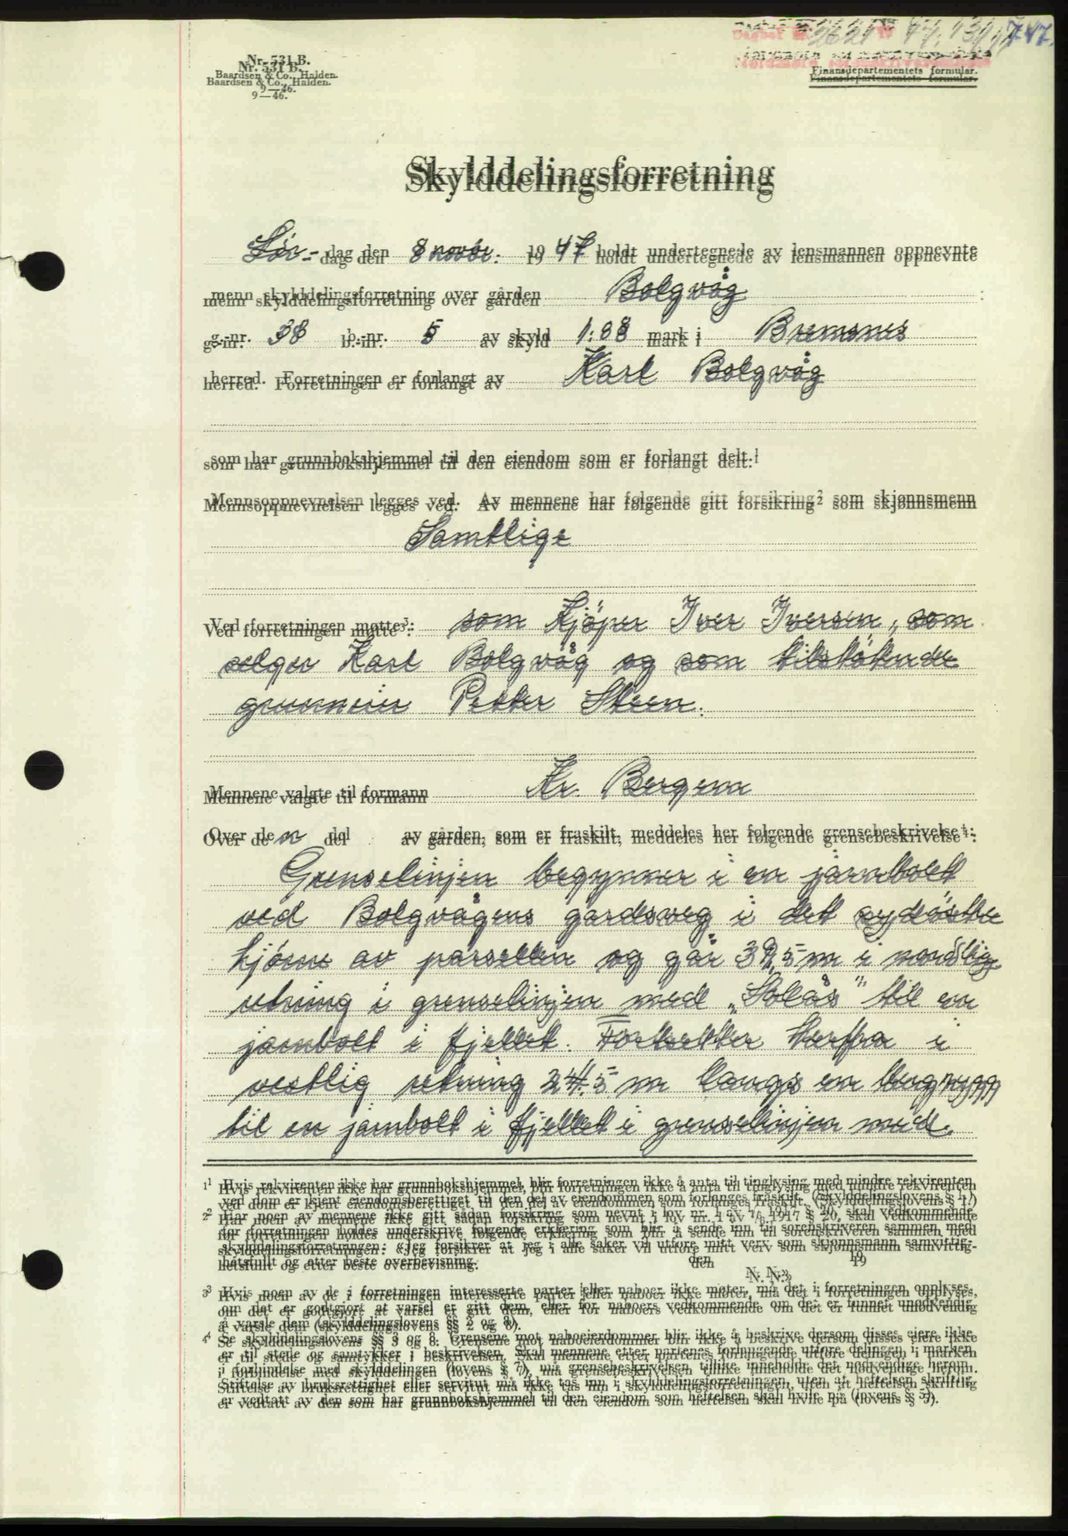 747.
Nr. 531 B.
Baardsen & Co., Halden.
9—46.
Finansdepartementets formular.
Skylddelingsforretning
Lör- dag den 8 novbr. 1947 holdt undertegnede av lensmannen oppnevnte
menn skylddelingsforretning over gården Bolgvåg
g.-nr. 38 b.-nr. 5 av skyld 1.88 mark i Bremsnes
herred. Forretningen er forlangt av Karl Bolgvåg
som har grunnbokshjemmel til den eiendom som er forlangt delt.¹
Mennsoppnevnelsen legges ved. Av mennene har følgende gitt forsikring² som skjønnsmenn
Samtlige
Ved forretningen møtte³: som Kjöper Iver Iversen, som
selger Karl Bolgvåg og som tilstötende
grunneier Petter Steen.
Mennene valgte til formann Kr. Bergem
Over den del av gården, som er fraskilt, meddeles her følgende grensebeskrivelse⁴:
Grenselinjen begynner i en jarnbolt
ved Bolgvågens gardsveg i det sydöstre
hjörne av parsellen og går 39,5 m i nordlig
retning i grenselinjen med „Solås" til en
jarnbolt i fjellet. Fortsetter herfra i
vestlig retning 24.5 m langs en bergrygg
til en jarnbolt i fjellet i grenselinjen med
¹ Hvis rekvirenten ikke har grunnbokshjemmel, blir forretningen ikke å anta til tinglysing med mindre rekvirenten
ved dom er kjent eiendomsberettiget til den del av eiendommen som forlanges fraskilt. (Skylddelingslovens § 1.)
² Har noen av mennene ikke gitt sådan forsikring som nevnt i lov nr. 1 av 1917 § 20, skal vedkommende
før forretningen holdes underskrive følgende erklæring som blir å sende inn til sorenskriveren sammen med
skylddelingsforretningen: «Jeg forsikrer at jeg i alle saker vil utføre mitt verv som skjønnsmann samvittig-
hetsfullt og etter beste overbevisning.
den 19
N. N.»
³ Hvis noen av de i forretningen interesserte parter eller naboer ikke møter, må det i forretningen opplyses,
om det er godtgjort at varsel er gitt dem, eller for naboers vedkommende om det er funnet unødvendig
å varsle dem (skylddelingslovens §§ 2 og 8).
⁴ Se skylddelingslovens §§ 3 og 8. Grensene mot naboeiendommer blir ikke å beskrive dersom disses eiere ikke
er til stede og samtykker i beskrivelsen. Skal mennene etter partenes forlangende utføre delingen i marken
i forbindelse med skylddelingen (lovens § 7), må grensebeskrivelsen tillike inneholde det nødvendige herom.
Stiftelse av bruksrettighet eller servitut må ikke tas inn i skylddelingsforretningen, uten at heftelsen skriftlig
er vedtatt av den som har grunnbokshjemmel til den eiendom som heftelsen skal hvile på (lovens § 5).